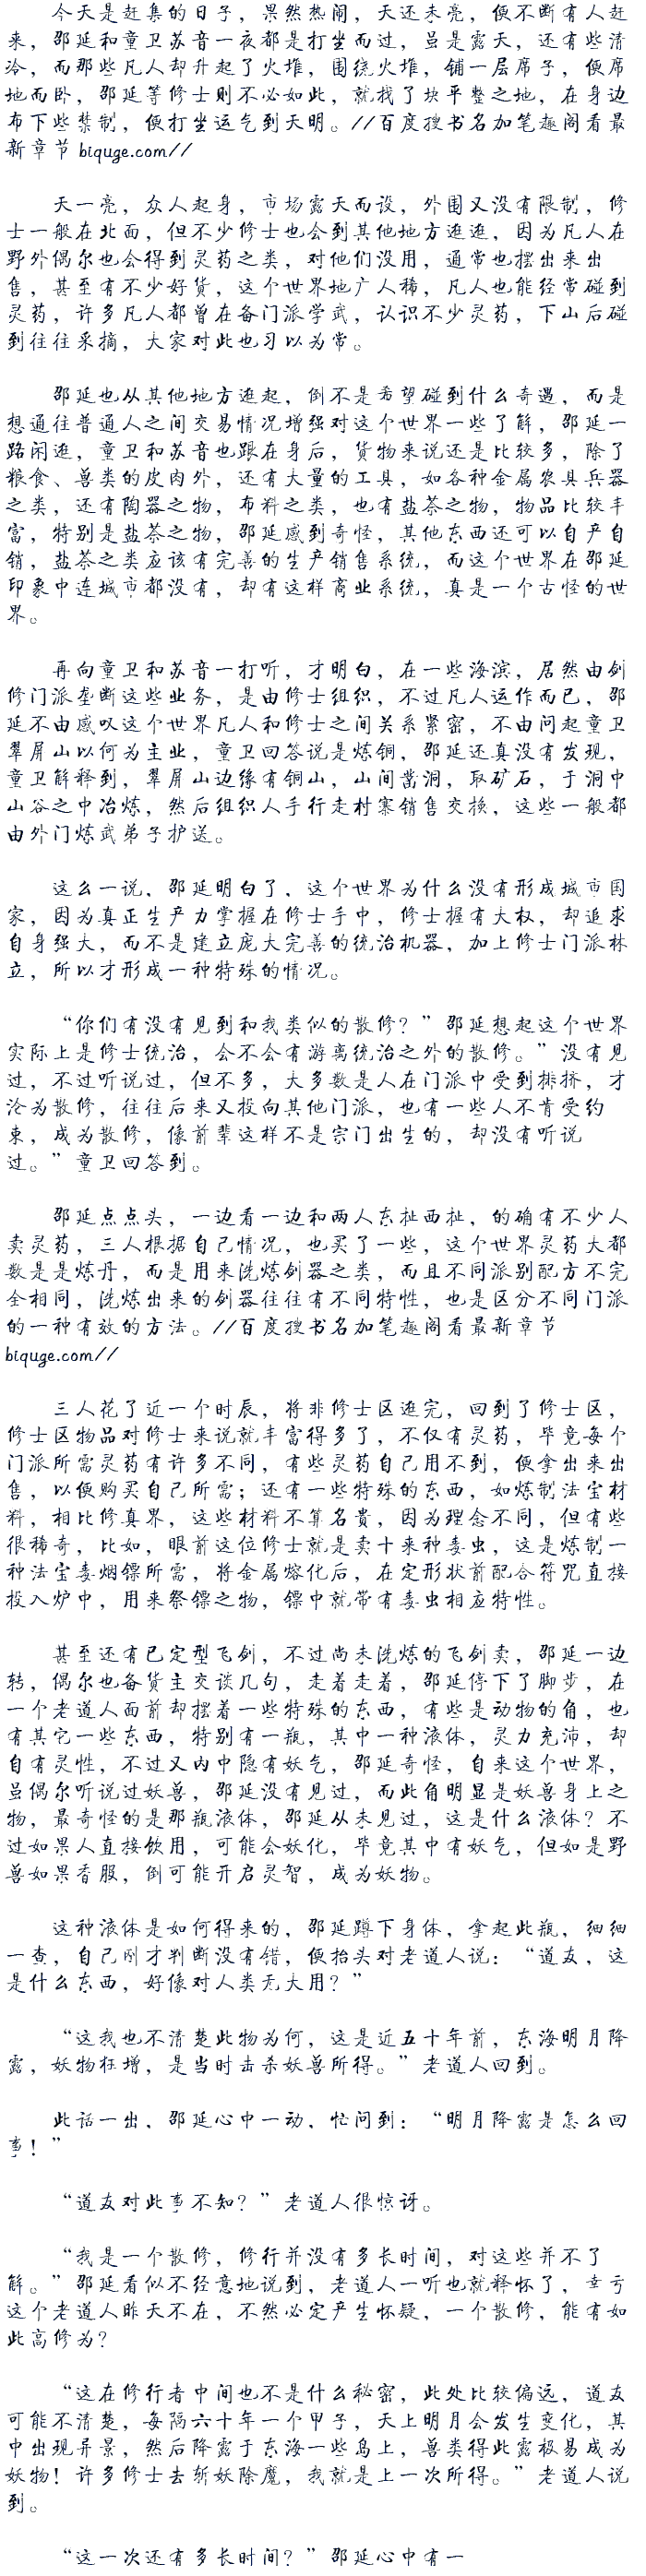 今天是赶集的日子，果然热闹，天还未亮，便不断有人赶
来，邵延和童卫苏音一夜都是打坐而过，虽是露天，还有些清
冷，而那些凡人却升起了火堆，围绕火堆，铺一层席子，便席
地而卧，邵延等修士则不必如此，就找了块平整之地，在身边
布下些禁制，便打坐运气到天明。//百度搜书名加笔趣阁看最
新章节 biquge.com//
天一亮，众人起身，市场露天而设，外围又没有限制，修
士一般在北面，但不少修士也会到其他地方逛逛，因为凡人在
野外偶尔也会得到灵药之类，对他们没用，通常也摆出来出
售，甚至有不少好货，这个世界地广人稀，凡人也能经常碰到
灵药，许多凡人都曾在备门派学武，认识不少灵药，下山后碰
到往往采摘，大家对此也习以为常。
邵延也从其他地方逛起，倒不是希望碰到什么奇遇，而是
想通往普通人之间交易情况增强对这个世界一些了解，邵延一
路闲逛，童卫和苏音也跟在身后，货物来说还是比较多，除了
粮食、兽类的皮肉外，还有大量的工具，如各种金属农具兵器
之类，还有陶器之物，布料之类，也有盐茶之物，物品比较丰
富，特别是盐茶之物，邵延感到奇怪，其他东西还可以自产自
销，盐茶之类应该有完善的生产销售系统，而这个世界在邵延
印象中连城市都没有，却有这样商业系统，真是一个古怪的世
界。
再向童卫和苏音一打听，才明白，在一些海滨，居然由剑
修门派垄断这些业务，是由修士组织，不过凡人运作而已，邵
延不由感叹这个世界凡人和修士之间关系紧密，不由问起童卫
翠屏山以何为主业，童卫回答说是炼铜，邵延还真没有发现，
童卫解释到，翠屏山边缘有铜山，山间凿洞，取矿石，于洞中
山谷之中冶炼，然后组织人手行走村寨销售交换，这些一般都
由外门炼武弟子护送。
这么一说，邵延明白了，这个世界为什么没有形成城市国
家，因为真正生产力掌握在修士手中，修士握有大权，却追求
自身强大，而不是建立庞大完善的统治机器，加上修士门派林
立，所以才形成一种特殊的情况。
“你们有没有见到和我类似的散修？”邵延想起这个世界
实际上是修士统治，会不会有游离统治之外的散修。”没有见
过，不过听说过，但不多，大多数是人在门派中受到排挤，才
沦为散修，往往后来又投向其他门派，也有一些人不肯受约
束，成为散修，像前辈这样不是宗门出生的，却没有听说
过。”童卫回答到。
邵延点点头，一边看一边和两人东扯西扯，的确有不少人
卖灵药，三人根据自己情况，也买了一些，这个世界灵药大都
数是是炼丹，而是用来洗炼剑器之类，而且不同派别配方不完
全相同，洗炼出来的剑器往往有不同特性，也是区分不同门派
的一种有效的方法。//百度搜书名加笔趣阁看最新章节
biquge.com//
三人花了近一个时辰，将非修士区逛完，回到了修士区，
修士区物品对修士来说就丰富得多了，不仅有灵药，毕竟每个
门派所需灵药有许多不同，有些灵药自己用不到，便拿出来出
售，以便购买自己所需；还有一些特殊的东西，如炼制法宝材
料，相比修真界，这些材料不算名贵，因为理念不同，但有些
很稀奇，比如，眼前这位修士就是卖十来种毒虫，这是炼制一
种法宝毒烟镖所需，将金属熔化后，在定形状前配合符咒直接
投入炉中，用来祭镖之物，镖中就带有毒虫相应特性。
甚至还有已定型飞剑，不过尚未洗炼的飞剑卖，邵延一边
转，偶尔也备货主交谈几句，走着走着，邵延停下了脚步，在
一个老道人面前却摆着一些特殊的东西，有些是动物的角，也
有其它一些东西，特别有一瓶，其中一种液体，灵力充沛，却
自有灵性，不过又内中隐有妖气，邵延奇怪，自来这个世界，
虽偶尔听说过妖兽，邵延没有见过，而此角明显是妖兽身上之
物，最奇怪的是那瓶液体，邵延从未见过，这是什么液体？不
过如果人直接饮用，可能会妖化，毕竟其中有妖气，但如是野
兽如果吞服，倒可能开启灵智，成为妖物。
这种液体是如何得来的，邵延蹲下身体，拿起此瓶，细细
一查，自己刚才判断没有错，便抬头对老道人说：“道友，这
是什么东西，好像对人类无大用？”
“这我也不清楚此物为何，这是近五十年前，东海明月降
露，妖物枉增，是当时击杀妖兽所得。”老道人回到。
此话一出，邵延心中一动，忙问到：“明月降露是怎么回
事！”
“道友对此事不知？”老道人很惊讶。
“我是一个散修，修行并没有多长时间，对这些并不了
解。”邵延看似不经意地说到，老道人一听也就释怀了，幸亏
这个老道人昨天不在，不然必定产生怀疑，一个散修，能有如
此高修为？
“这在修行者中间也不是什么秘密，此处比较偏远，道友
可能不清楚，每隔六十年一个甲子，天上明月会发生变化，其
中出现异景，然后降露于东海一些岛上，兽类得此露极易成为
妖物！许多修士去斩妖除魔，我就是上一次所得。”老道人说
到。
“这一次还有多长时间？”邵延心中有一